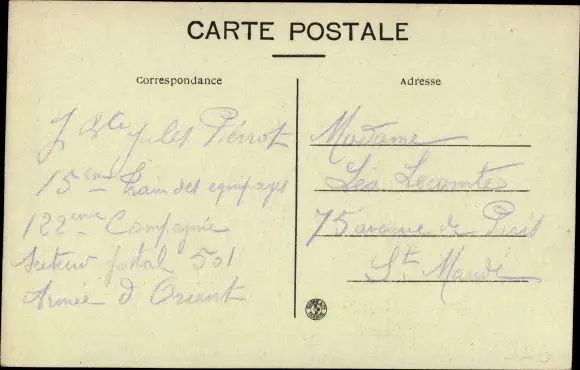 CARTE POSTALE
Correspondance
Jules Pierrot
15ème train des équipages
122ème Compagnie
Secteur postal 501
Armée d'Orient
Adresse
Madame
Léa Lecomte
75 avenue de
St. Mandé